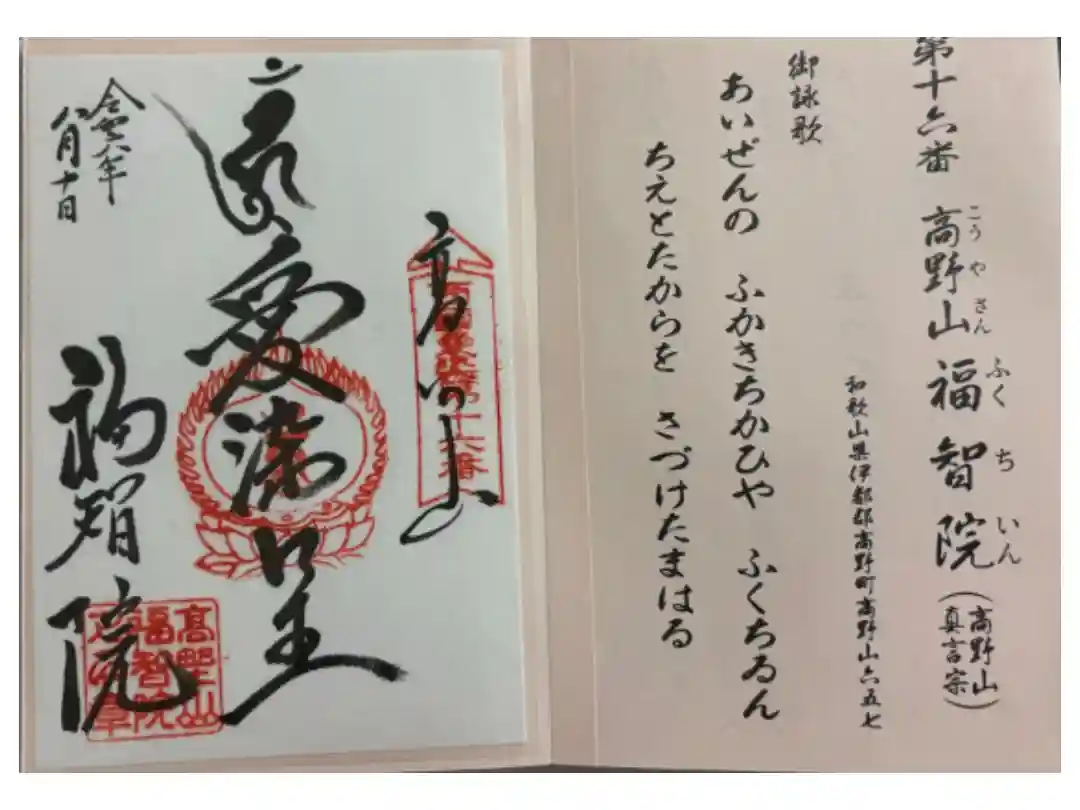 第十六番 高野山 福智院(高野山真言宗)
こうやさん ふくちいん
和歌山県伊都郡高野町高野山六五七
御詠歌
あいぜんの ふかきちかひや ふくちゐん
ちえとたからを さづけたまはる
高野山
愛染明王
福智院
令和六年
八月十日
高野山
福智院